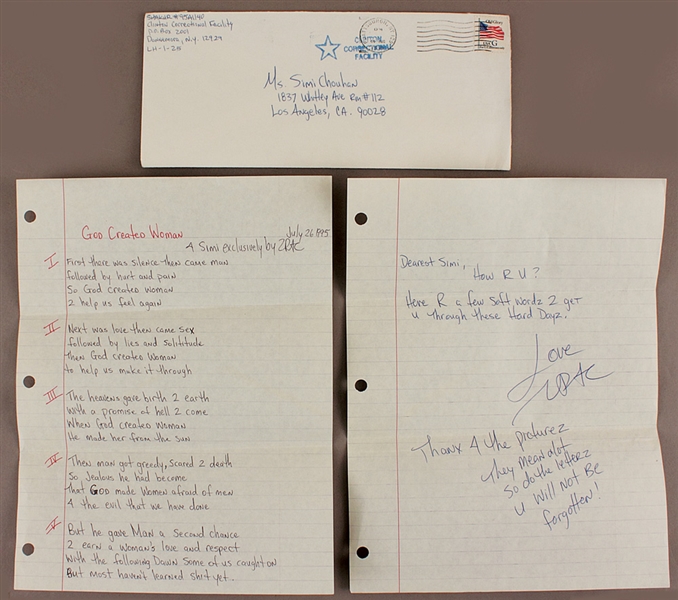 Clinton Correctional Facility
P.O. Box 2001
Dannemora, N.Y. 12929
CLINTON
CORRECTIONAL
FACILITY
USA
G
Ms. Simi Chouhan
1837 Whitley Ave Rm #112
Los Angeles, CA. 90028
God Created Woman
July 26 1995
4 Simi exclusively by 2PAC
I
First there was silence then came man
followed by hurt and pain
So God created woman
2 help us feel again
II
Next was love then came sex
followed by lies and solititude
then God created Woman
to help us make it through
III
The heavens gave birth 2 earth
With a promise of hell 2 come
When God created Woman
He made her from the sun
IV
Then man got greedy, scared 2 death
So Jealous he had become
That GOD made Women afraid of men
4 the evil that we have done
V
But he gave Man a Second chance
2 earn a woman's love and respect
With the following Dawn some of us caught on
But most haven't learned shit yet..
Dearest Simi,
How R U?
Here R a few Soft Wordz 2 get
u Through these Hard Dayz.
Love
2PAC
Thanx 4 the picturez
They mean alot
so do the letterz
U Will Not Be
forgotten!